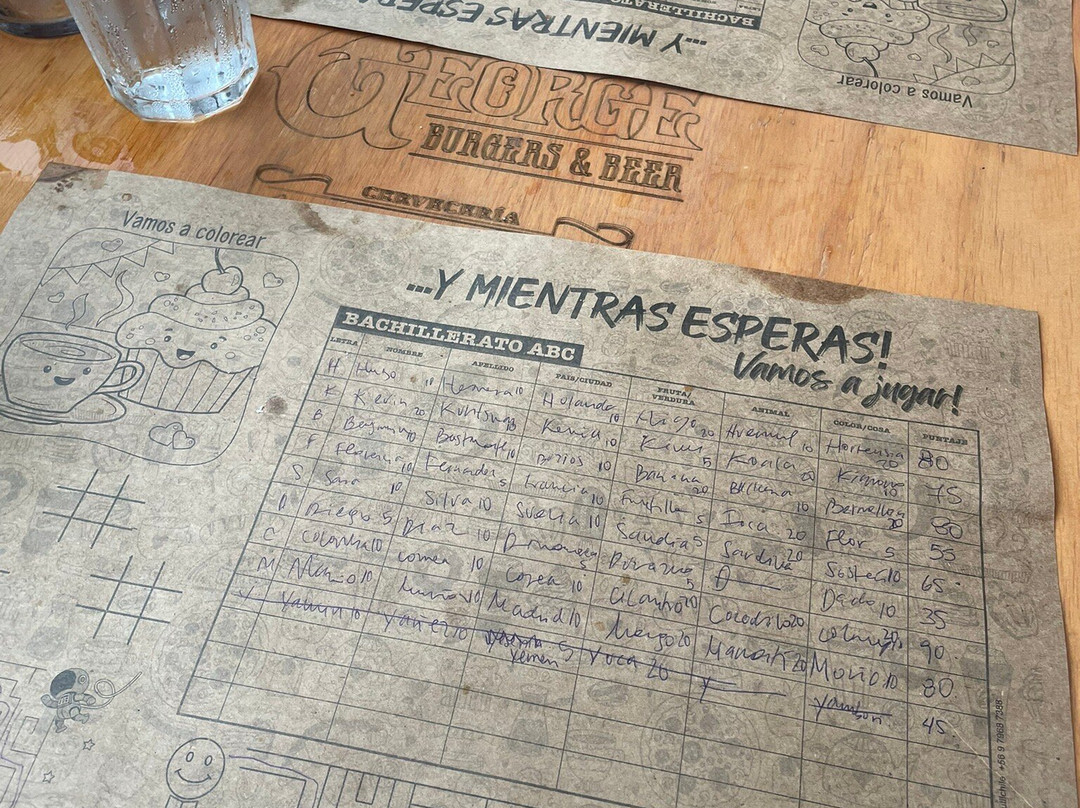 ...Y MIENTRAS ESPERA
BACHILLERATO
Vamos a colorear
GEORGE
BURGERS & BEER
CERVECERÍA
Vamos a colorear
...Y MIENTRAS ESPERAS!
Vamos a jugar!
BACHILLERATO ABC
LETRA NOMBRE APELLIDO PAIS/CIUDAD FRUTA/VERDURA ANIMAL COLOR/COSA PUNTAJE
H Hugo 10 Herrera 10 Holanda 10 Higo 20 Huemul 10 Hortensia 20 80
K Kevin 20 Kenia 10 Kiwi 5 Koala 75
B Benjamin 10 Bustamante 10 10 Banana 20 Ballena 10 80
F Florencia 10 Fernandez 5 Francia 10 Frutilla 5 20 Flor 5 55
S Sara 10 Silva 10 Suecia 10 Sandia 5 Sardina 20 10 65
D Diego 5 Diaz 10 Dinamarca 5 Durazno 5 D Dado 10 35
C Colomba 10 Correa 10 Corea 10 Cilantro 20 Cocodrilo 20 20 90
M Mario 10 10 Madrid 10 Mango 20 Manati 20 10 80
Y 10 Yañez 10 Yemen 5 Yuca 20 Y 45
+56 9 7968 7388